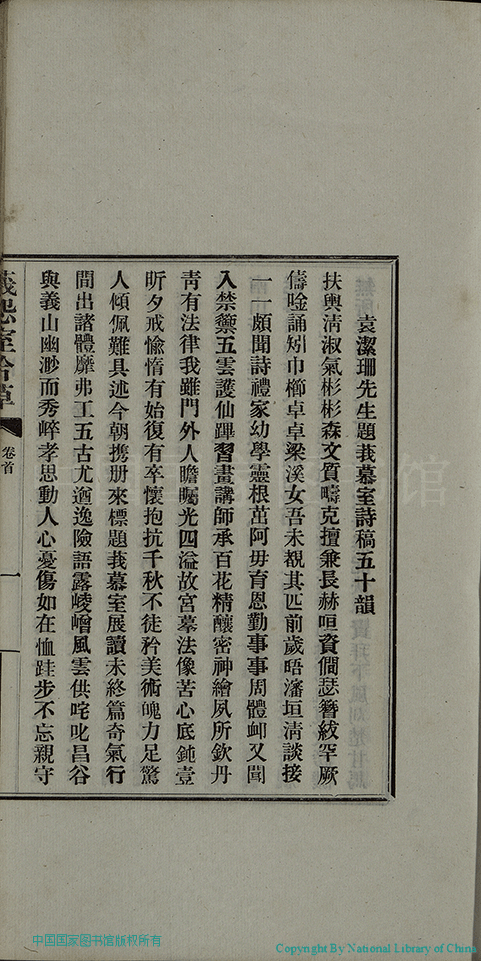 袁潔珊先生題莪慕室詩稿五十韻
扶輿淸淑氣彬彬森文質疇克擅兼長赫咺資僩瑟簪紱罕厥
儔唫誦矧巾櫛卓卓梁溪女吾未覩其匹前歲晤瀋垣淸談接
一一頗聞詩禮家幼學靈根茁阿毋育恩勤事事周體卹又聞
入禁籞五雲護仙蹕習畫講師承百花精釀密神繪夙所欽丹
靑有法律我雖門外人瞻矚光四溢故宮摹法像苦心底鈍壹
昕夕戒愉惰有始復有卒懷抱抗千秋不徒矜美術魄力足驚
人傾佩難具述今朝携册來標題莪慕室展讀未終篇奇氣行
間出諸體靡弗工五古尤遒逸險語露崚嶒風雲供咤叱昌谷
與義山幽渺而秀崒孝思動人心憂傷如在恤跬步不忘親守
莪慕室吟草
卷首
一
中国国家图书馆版权所有
Copyright By National Library of China